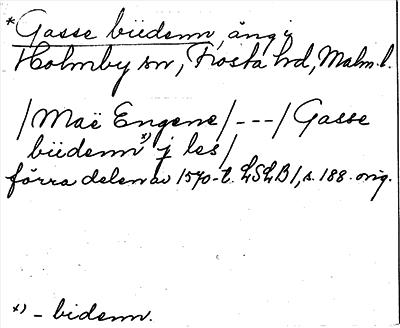 *Gasse büdenn, äng i
Holmby sn, Frosta hd, Malm. l.
/Maë Engene/---/Gasse
büdenn *) j les/
förra delen av 1570-t. LSLB 1, s. 188. orig.
*) - bidenn.